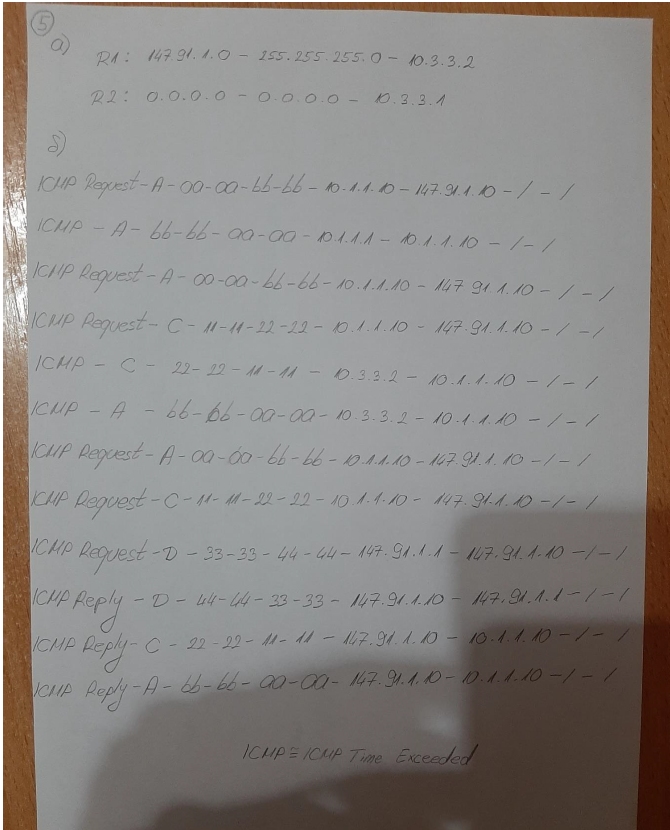 5
a)
R1: 147.91.1.0 - 255.255.255.0 - 10.3.3.2
R2: 0.0.0.0 - 0.0.0.0 - 10.3.3.1
б)
ICMP Request - A - aa-aa-bb-bb - 10.1.1.10 - 147.91.1.10 - / - /
ICMP - A - bb-bb-aa-aa - 10.1.1.1 - 10.1.1.10 - / - /
ICMP Request - A - aa-aa-bb-bb - 10.1.1.10 - 147.91.1.10 - / - /
ICMP Request - C - 11-11-22-22 - 10.1.1.10 - 147.91.1.10 - / - /
ICMP - C - 22-22-11-11 - 10.3.3.2 - 10.1.1.10 - / - /
ICMP - A - bb-bb-aa-aa - 10.3.3.2 - 10.1.1.10 - / - /
ICMP Request - A - aa-aa-bb-bb - 10.1.1.10 - 147.91.1.10 - / - /
ICMP Request - C - 11-11-22-22 - 10.1.1.10 - 147.91.1.10 - / - /
ICMP Request - D - 33-33-44-44 - 147.91.1.1 - 147.91.1.10 - / - /
ICMP Reply - D - 44-44-33-33 - 147.91.1.10 - 147.91.1.1 - / - /
ICMP Reply - C - 22-22-11-11 - 147.91.1.10 - 10.1.1.10 - / - /
ICMP Reply - A - bb-bb-aa-aa - 147.91.1.10 - 10.1.1.10 - / - /
ICMP ≡ ICMP Time Exceeded